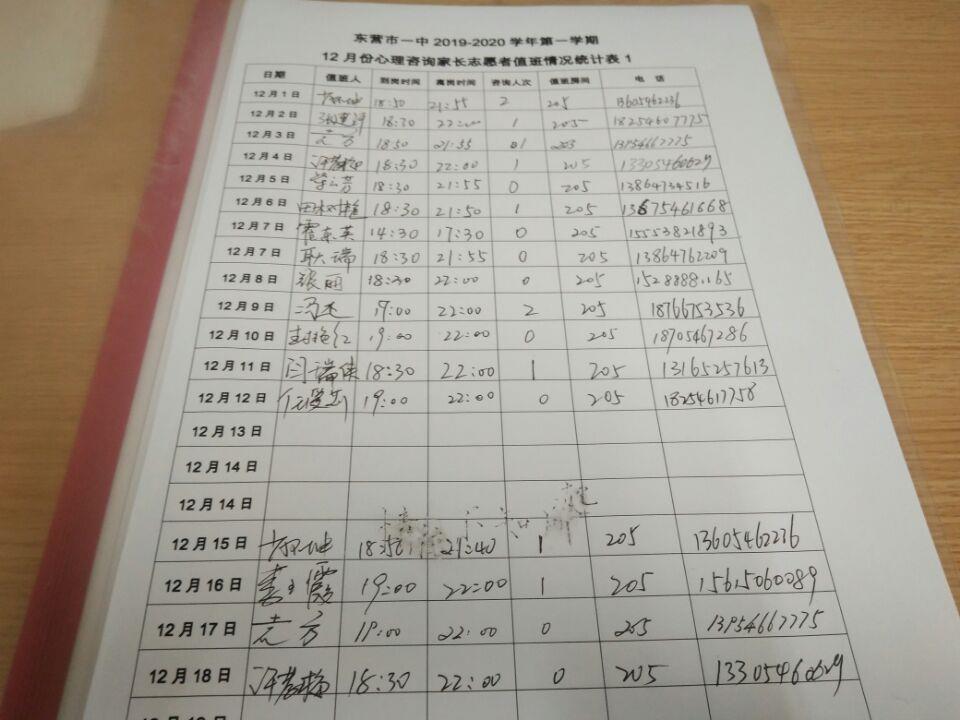 东营市一中 2019-2020 学年第一学期
12 月份心理咨询家长志愿者值班情况统计表 1
日期 值班人 到岗时间 离岗时间 咨询人次 值班房间 电话
12 月 1 日 18:50 21:55 2 205 13605462236
12 月 2 日 18:30 22:00 1 205 18254607775
12 月 3 日 18:50 21:55 203
12 月 4 日 18:30 22:00 1 205 13305460629
12 月 5 日 18:30 21:55 0 205 13864734516
12 月 6 日 18:30 21:50 1 205 13675461668
12 月 7 日 霍东英 14:30 17:30 0 205 15553821893
12 月 7 日 耿瑞 18:30 21:55 0 205 13864762209
12 月 8 日 张丽 18:30 22:00 0 205 15288881165
12 月 9 日 冯杰 17:00 22:00 2 205 18766753536
12 月 10 日 封艳红 19:00 22:00 0 205 18705467286
12 月 11 日 闫瑞侠 18:30 22:00 1 205 13165257613
12 月 12 日 19:00 22:00 0 205 18254617758
12 月 13 日
12 月 14 日
12 月 14 日
12 月 15 日 18:50 21:40 1 205 13605462236
12 月 16 日 19:00 22:00 1 205 15615060089
12 月 17 日 19:00 22:00 0 205 13954667775
12 月 18 日 18:30 22:00 0 205 13305460629